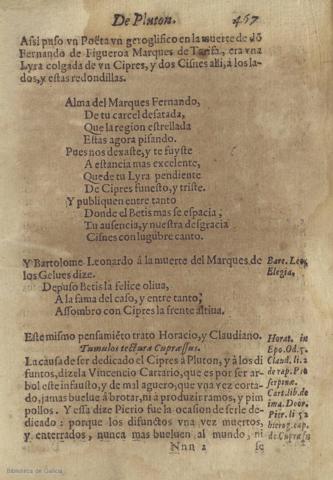 De Pluton. 457
Assi puso vn Poëta vn geroglifico en la muerte de dõ
Fernando de Figueroa Marques de Tarifa, era vna
Lyra colgada de vn Cipres, y dos Cisnes alli, à los la-
dos, y estas redondillas.
Alma del Marques Fernando,
De tu carcel desatada,
Que la region estrellada
Estas agora pisando.
Pues nos dexaste, y te fuyste
A estancia mas excelente,
Quede tu Lyra pendiente
De Cipres funesto, y triste.
Y publiquen entre tanto
Donde el Betis mas se espacia,
Tu ausencia, y nuestra desgracia
Cisnes con lugubre canto.
Y Bartolome Leonardo á la muerte del Marques de
los Gelues dize.
Bart. Leo.
Elegia,
Depuso Betis la felice oliua,
Â la fama del caso, y entre tanto,
Assombro con Cipres la frente altiua.
Este mismo pensamiẽto trato Horacio, y Claudiano.
Tumulos tectura Cupressus.
La causa de ser dedicado el Cipres à Pluton, y à los di
funtos, dizela Vincencio Cartario, que es por ser ar-
bol este infausto, y de mal aguero, que vna vez corta-
do, jamas buelue â brotar, ni à produzir ramos, y pim
pollos. Y essa dize Pierio fue la ocasion de serle de-
dicado: porque los difunctos vna vez muertos,
y enterrados, nunca mas bueluen al mundo, ni
Horat. in
Epo. Od. 5.
Claud. li. 2
de rap. Pro
serpinæ.
Cart. lib. de
ima. Deor.
Pier. li 52
hierog. cap.
de Cupress
Nnn 2 se
Biblioteca de Galicia